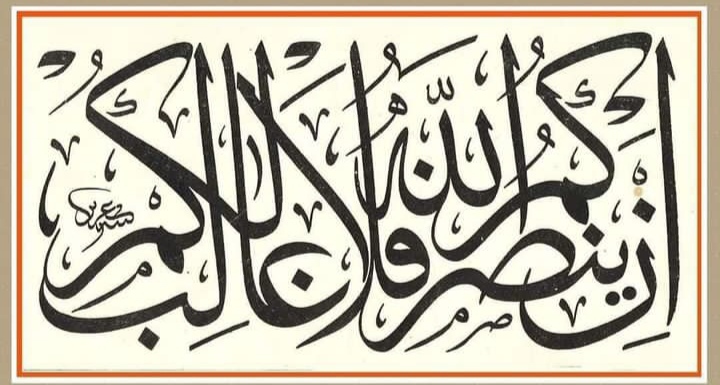 إِن يَنصُرْكُمُ اللَّهُ فَلَا غَالِبَ لَكُمْ